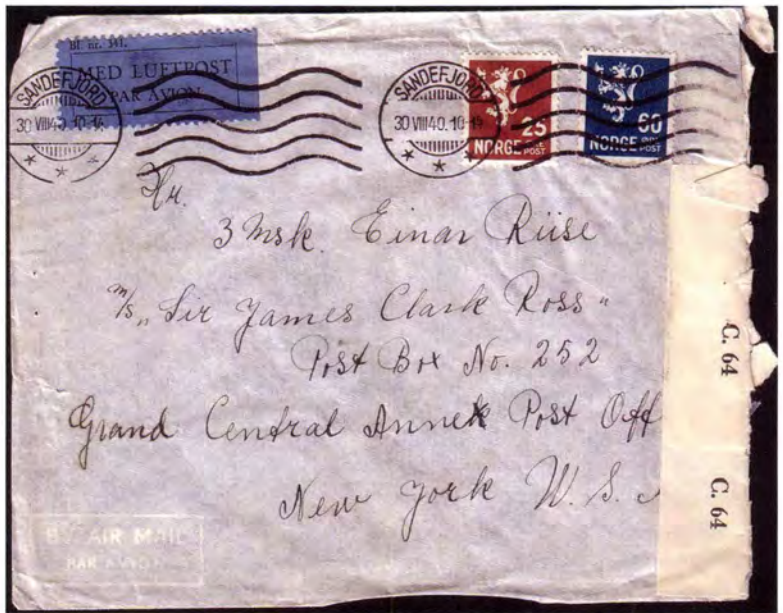 Bl. nr. 541.
MED LUFTPOST
PAR AVION
SANDEFJORD
30 VIII 40. 10-14
SANDEFJORD
30 VIII 40. 10-14
25
NORGE ØRE POST
60
NORGE ØRE POST
Hr.
3 Msk. Einar Riise
m/s „Sir James Clark Ross"
Post Box No. 252
Grand Central Annek Post Off
New York U.S.
C. 64
C. 64
BY AIR MAIL
PAR AVION